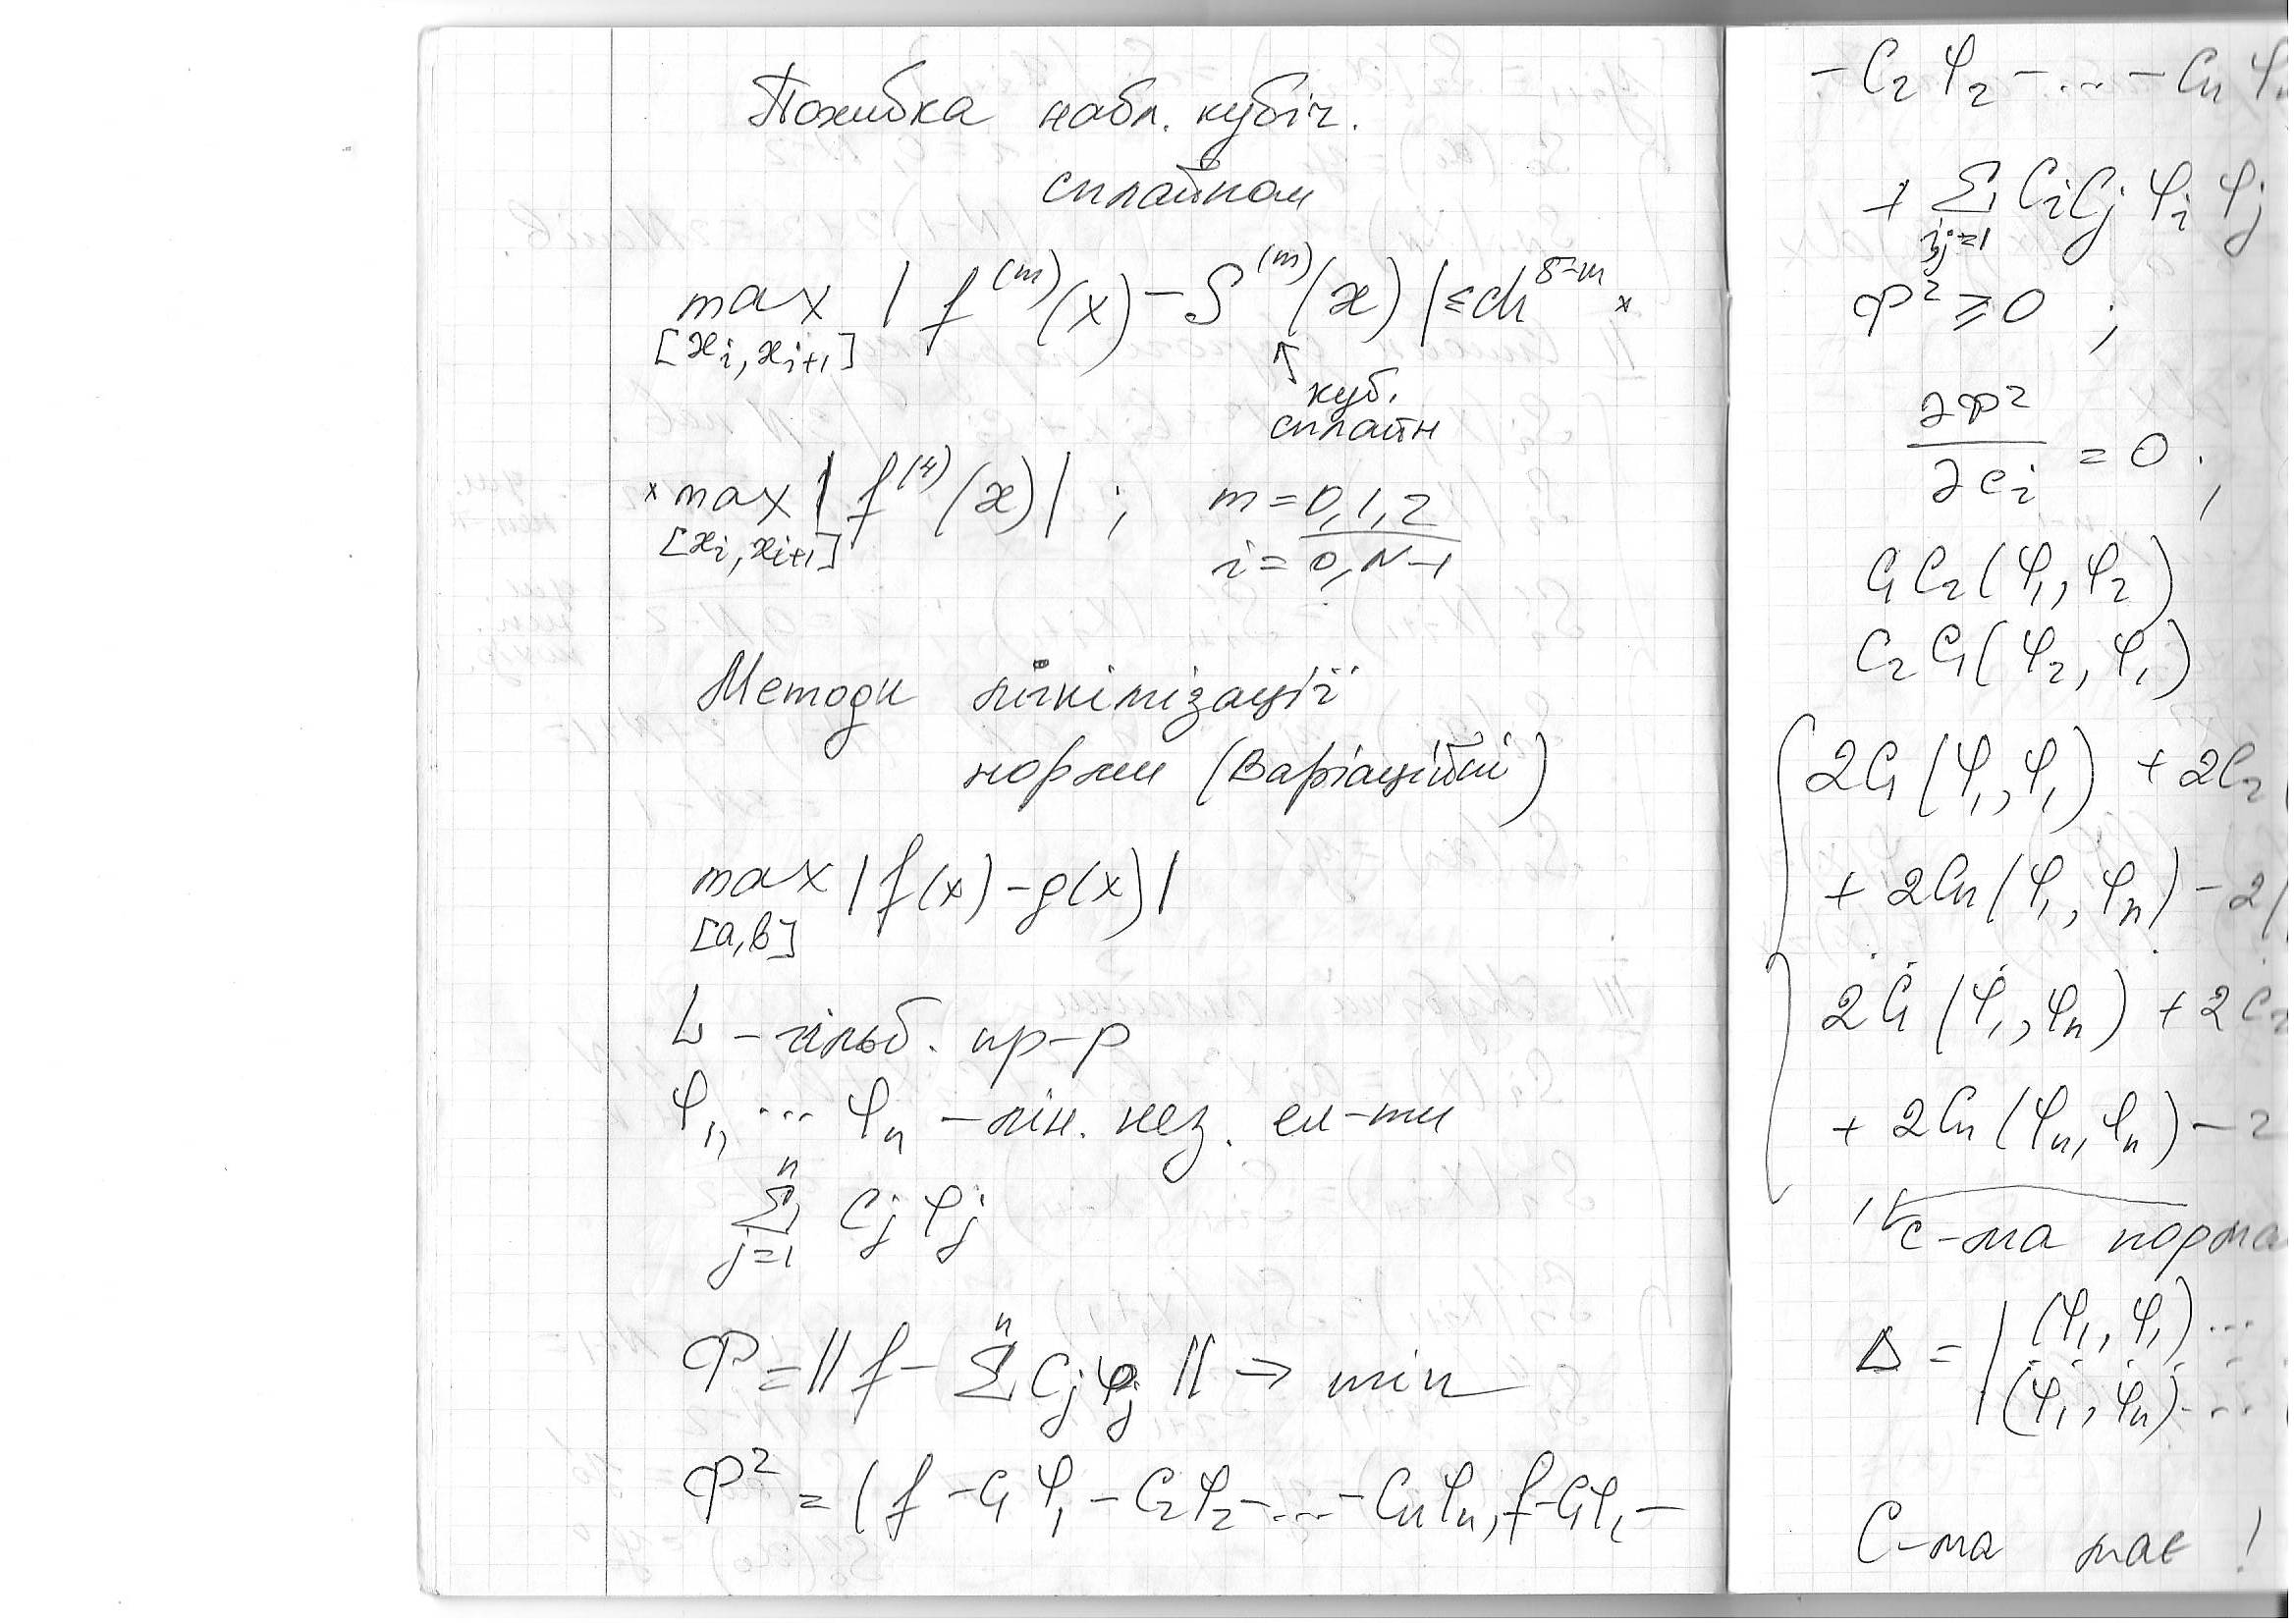 Похибка набл. кубіч.
сплайном
max | f^(m)(x) − S^(m)(x) | ≤ ch^5−m *
[xi, xi+1]
↖
куб.
сплайн
* max | f^(4)(x) | ; m = 0,1,2
[xi, xi+1] i = 0, N−1
Методи мінімізації
норми (Варіаційні)
max | f(x) − g(x) |
[a, b]
L – гільб. пр-р
φ1, ... φn – лін. нез. ел-ти
n
Σ Cj φj
j=1
n
Φ = || f − Σ Cj φj || → min
Φ² = ( f − C1 φ1 − C2 φ2 − ... − Cn φn, f − C1φ1 −
− C2 φ2 − ... − Cn φn
+ Σ Ci Cj φi φj
i,j=1
Φ² ≥ 0 ;
∂Φ²
∂ci = 0 ;
C1 C2 (φ1, φ2)
C2 C1 (φ2, φ1)
2C1 (φ1, φ1) + 2C2 (
+ 2Cn (φ1, φn) − 2(
2C1 (φ1, φn) + 2C2
+ 2Cn (φn, φn) − 2
с-ма норма
Δ = | (φ1, φ1) ...
(φ1, φn) ...
С-ма має !